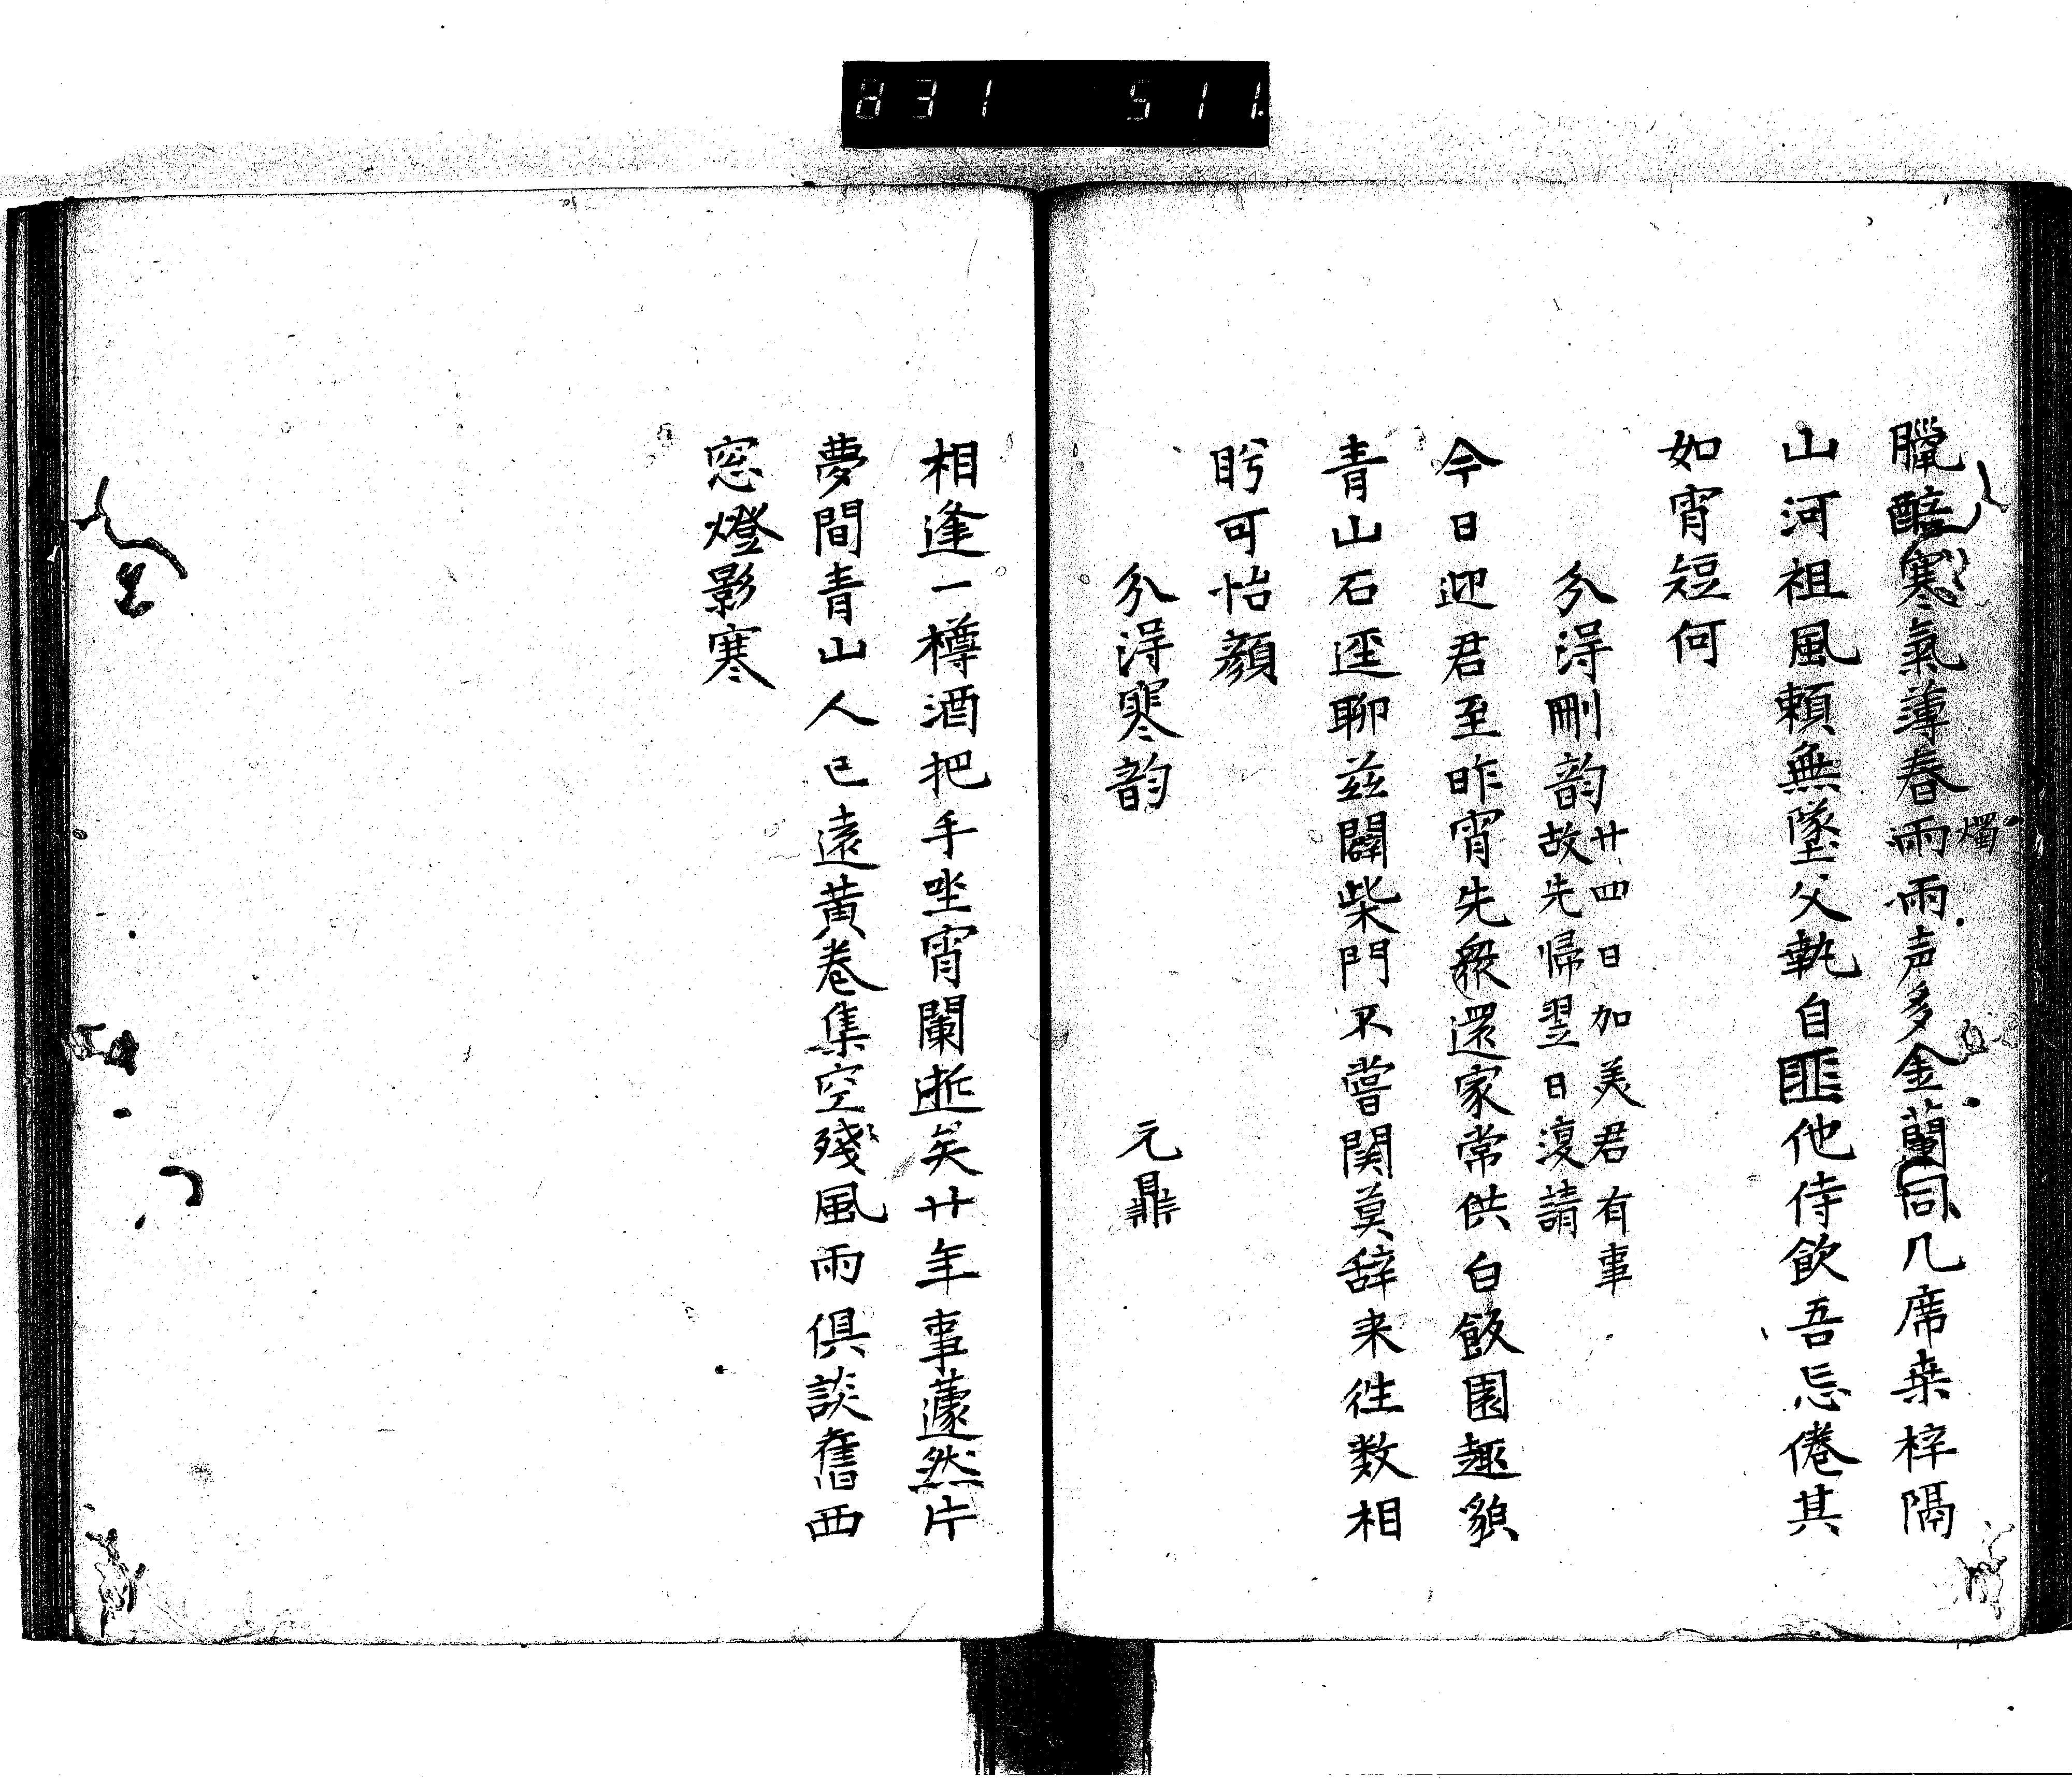 831 511
臘醅寒氣薄春雨雨声多金蘭同几席桒梓隔
燭
山河祖風頼無墜父執自匪他侍飲吾忘倦其
如宵短何
分淂刪韵廿四日加美君有事
故先帰翌日復請
今日迎君至昨宵先衆還家常供白飯園趣貌
青山石逕聊玆闢柴門不嘗関莫辞来往数相
盻可怡顔
分淂寒韵 元鼎
相逢一樽酒把手坐宵闌逝矣廿年事蘧然片
夢間青山人已遠黄巻集空殘風雨倶談舊西
窓燈影寒